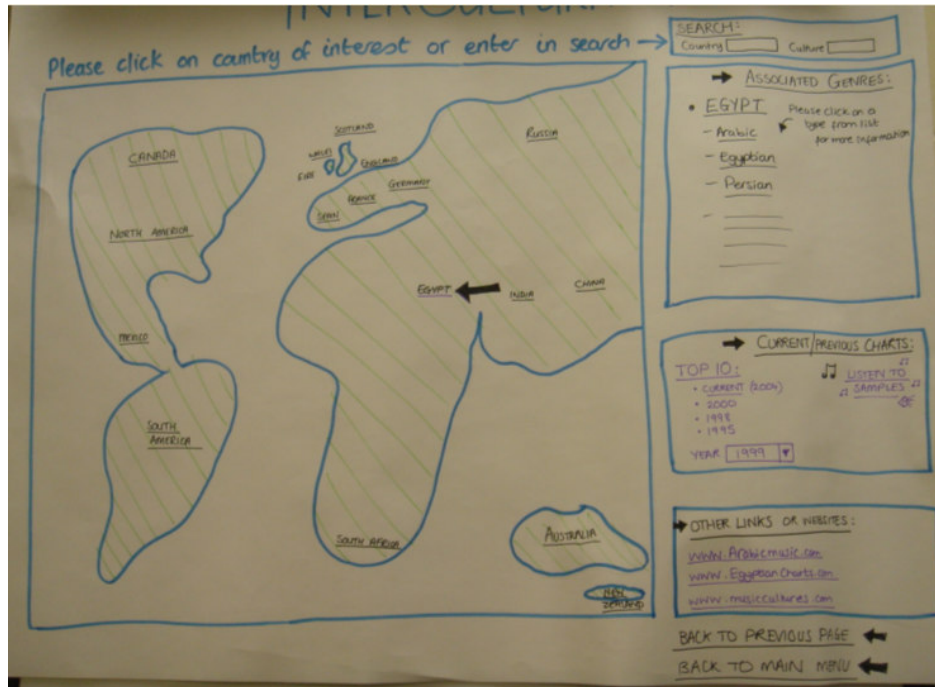 Please click on country of interest or enter in search →
SEARCH:
Country
Culture
CANADA
NORTH AMERICA
MEXICO
SOUTH AMERICA
SCOTLAND
WALES
ENGLAND
EIRE
GERMANY
FRANCE
SPAIN
RUSSIA
EGYPT
INDIA
CHINA
SOUTH AFRICA
AUSTRALIA
NEW
ZEALAND
→ ASSOCIATED GENRES:
• EGYPT
Please click on a
type from list
for more information
- Arabic
- Egyptian
- Persian
→ CURRENT/PREVIOUS CHARTS:
TOP 10:
• CURRENT (2004)
• 2000
• 1998
• 1995
YEAR 1999
LISTEN TO
SAMPLES
→ OTHER LINKS OR WEBSITES:
www.Arabicmusic.com
www.EgyptianCharts.com
www.musiccultures.com
BACK TO PREVIOUS PAGE ←
BACK TO MAIN MENU ←